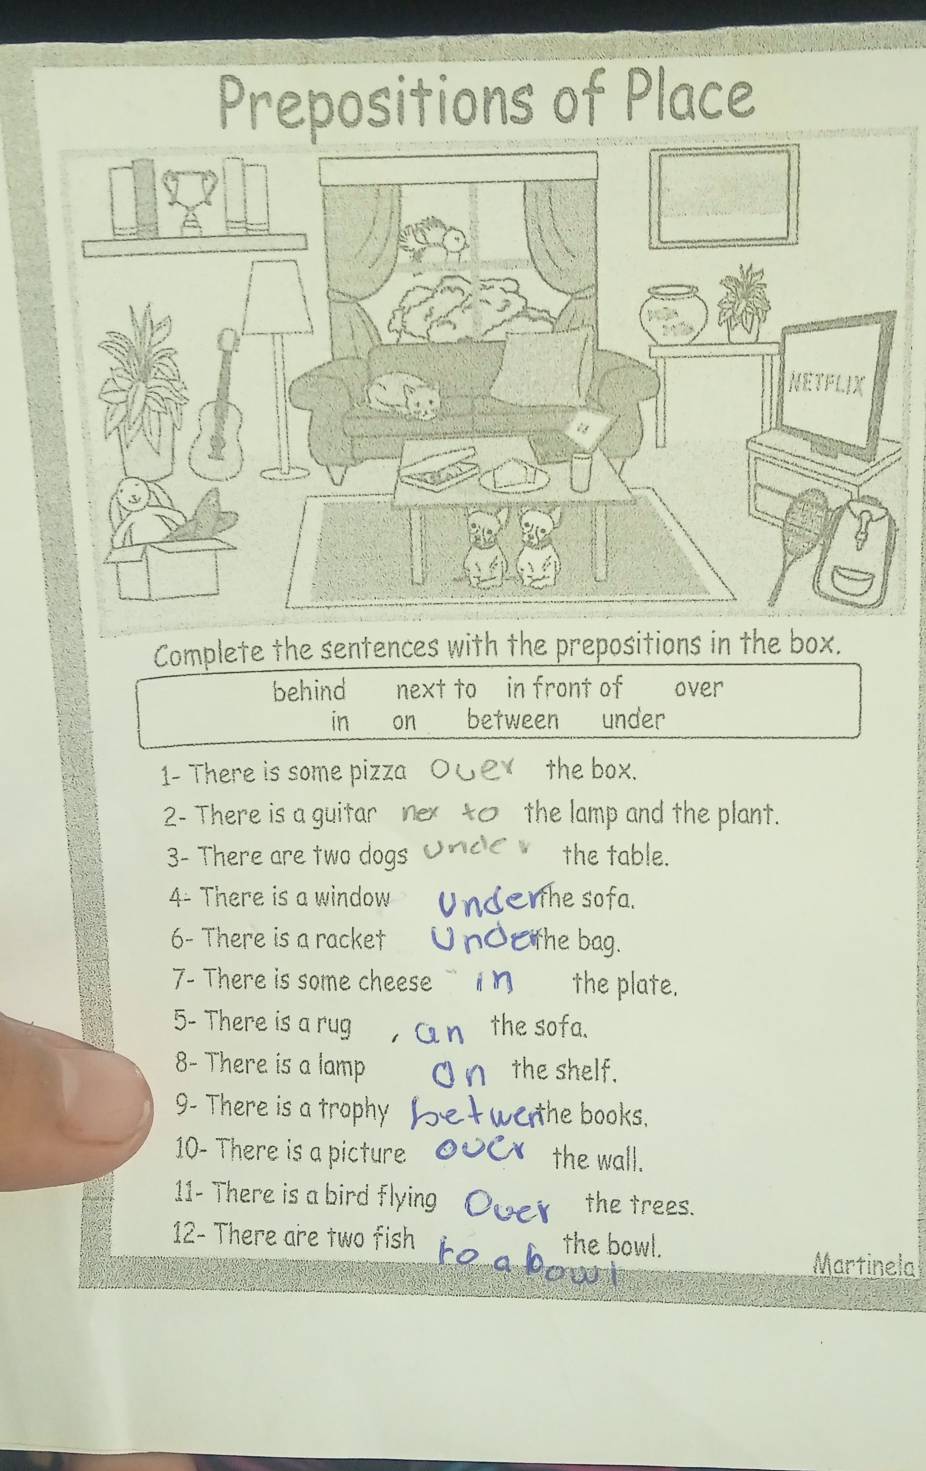 Prepositions of Place
NETFLIX
Complete the sentences with the prepositions in the box.
behind next to in front of over
in on between under
1- There is some pizza over the box.
2- There is a guitar nex to the lamp and the plant.
3- There are two dogs under the table.
4- There is a window under the sofa.
6- There is a racket under the bag.
7- There is some cheese in the plate.
5- There is a rug , an the sofa.
8- There is a lamp on the shelf.
9- There is a trophy betwen the books.
10- There is a picture over the wall.
11- There is a bird flying over the trees.
12- There are two fish to a bowl the bowl.
Martinela